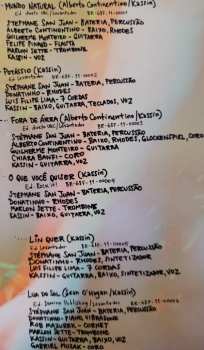 MUNDO NATURAL (Alberto Continentino/Kassin)
STÉPHANE SAN JUAN - BATERIA, PERCUSSÃO
ALBERTO CONTINENTINO - BAIXO, RHODES
GUILHERME MONTEIRO - GUITARRA
FELIPE PINAUD - FLAUTA
MARLON SETTE - TROMBONE
KASSIN - VOZ
POTÁSSIO (KASSIN)
STÉPHANE SAN JUAN - BATERIA, PERCUSSÃO
DONATINHO - RHODES
LUIS FILIPE LIMA - 7 CORDAS
KASSIN - BAIXO, GUITARRA, TECLADOS, VOZ
FORA DE ÁREA (Alberto Continentino/Kassin)
STÉPHANE SAN JUAN - BATERIA, PERCUSSÃO
ALBERTO CONTINENTINO - BAIXO, RHODES, GLOCKENSPIEL, CORO
GUILHERME MONTEIRO - GUITARRA
CHIARA BANFI - CORO
KASSIN - GUITARRA, VOZ
O QUE VOCÊ QUISER (KASSIN)
STÉPHANE SAN JUAN - BATERIA, PERCUSSÃO
DONATINHO - RHODES
MARLON SETTE - TROMBONE
KASSIN - BAIXO, GUITARRA, VOZ
QUER (KASSIN)
STÉPHANE SAN JUAN - BATERIA, PERCUSSÃO
DONATINHO - RHODES, SINTETIZADOR
LUIS FILIPE LIMA - 7 CORDAS
KASSIN - GUITARRA, BAIXO, SINTETIZADOR, VOZ
LUA DO SOL (Sean O'Hagan/Kassin)
STÉPHANE SAN JUAN - BATERIA, PERCUSSÃO
DONATINHO - PIANO, VIBRAFONE
ROB MAZUREK - CORNET
MARLON SETTE - TROMBONE
KASSIN - BAIXO, GUITARRA, VOZ
GABRIEL MUZAK - CORO